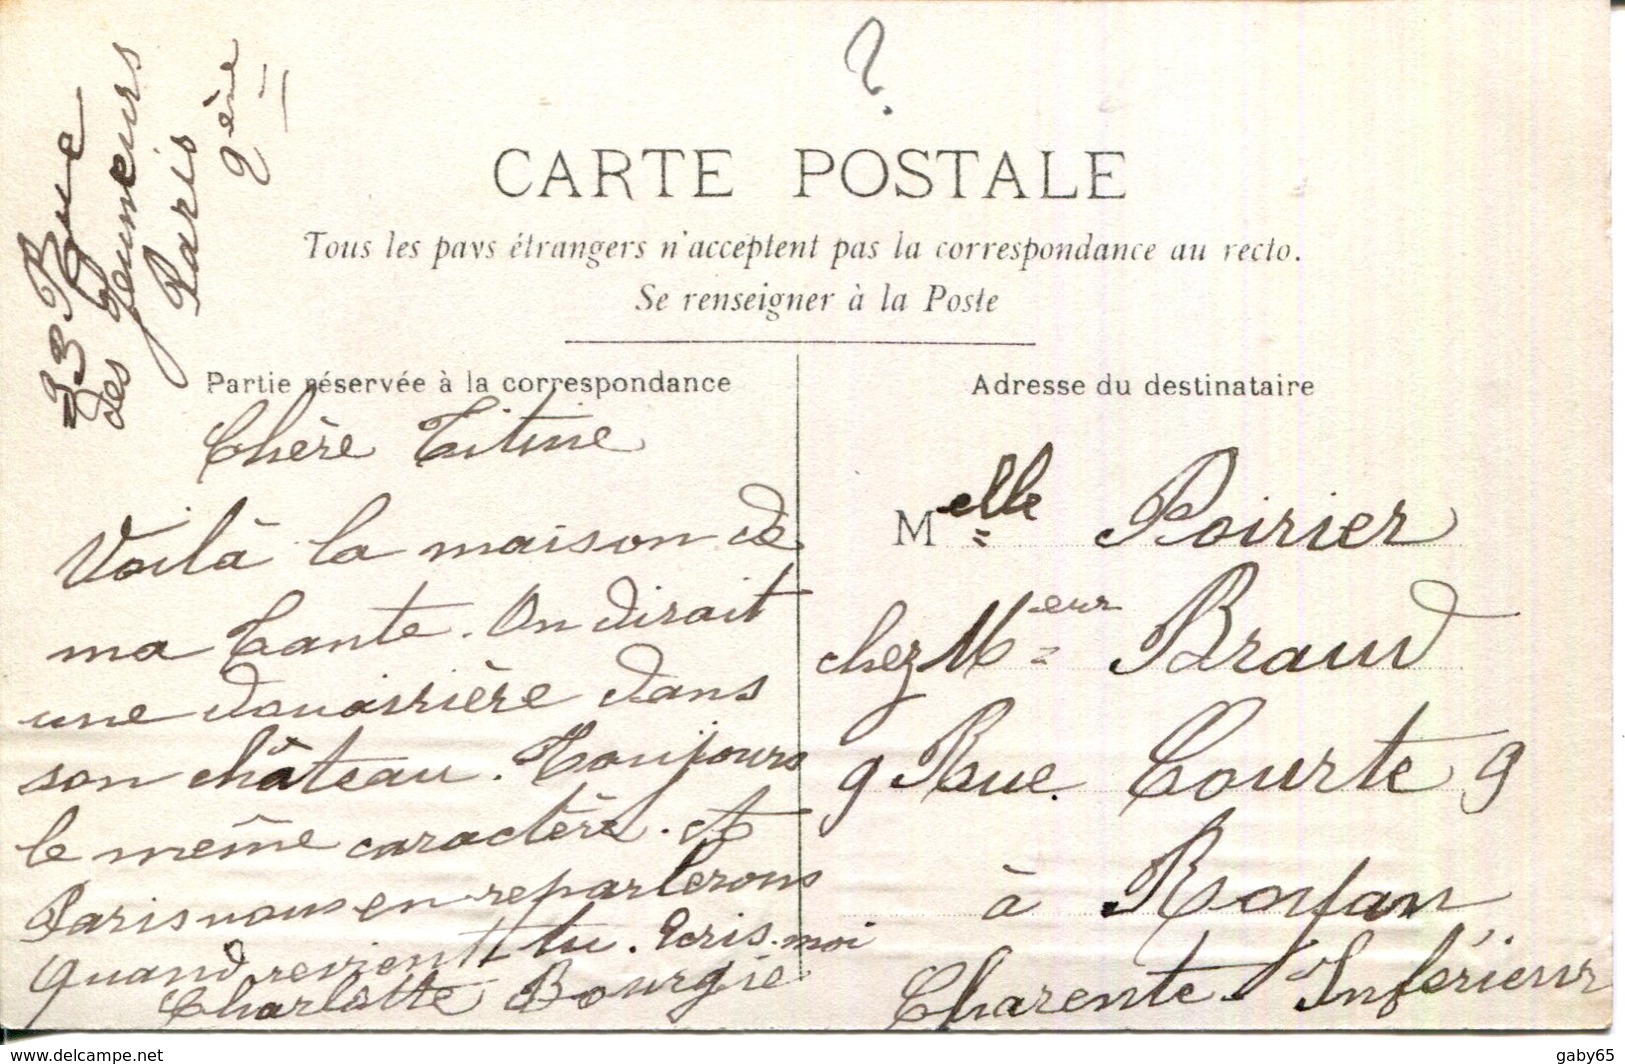 ?
33 Rue
des Jeuneurs
Paris
2ème
CARTE POSTALE
Tous les pays étrangers n'acceptent pas la correspondance au recto.
Se renseigner à la Poste
Partie réservée à la correspondance
Chère Titine
Voilà la maison de
ma tante. On dirait
une douairière dans
son château. Toujours
le même caractère. A
Paris nous en reparlerons
quand revient tu. Ecris-moi
Charlotte Bourgie
Adresse du destinataire
Melle Poirier
chez Mr Braud
9 Rue Courte 9
à Royan
Charente Inférieur
www.delcampe.net
gaby65